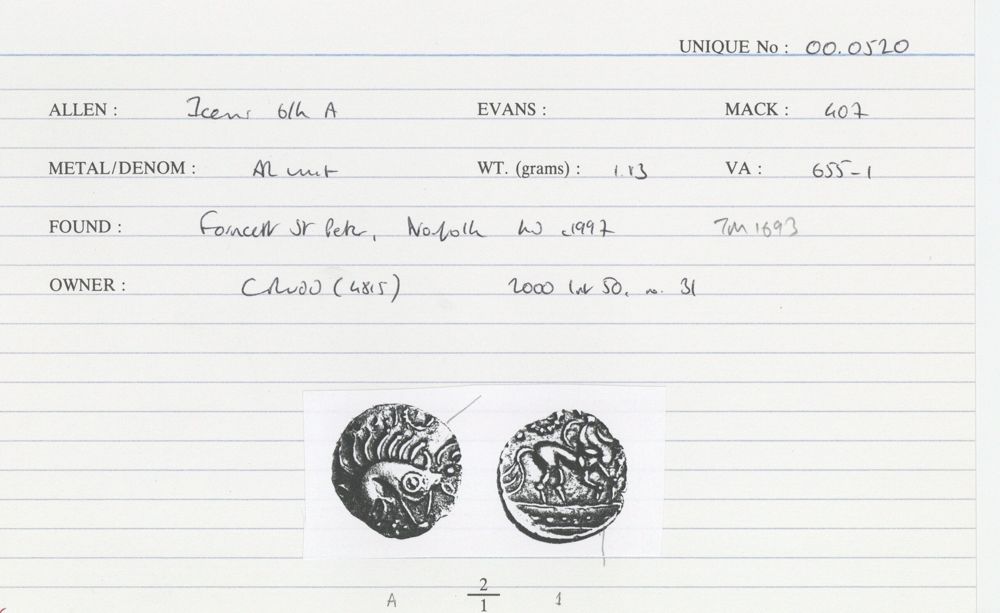 UNIQUE No : 00.0520
ALLEN : Iceni 6/h A EVANS : MACK : 407
METAL/DENOM : AR unit WT. (grams) : 1.13 VA : 655-1
FOUND : Forncett St Peter, Norfolk c.1997 TM 1693
OWNER : CRUDD (48.15) 2000 List 50, no. 31
A 2/1 1